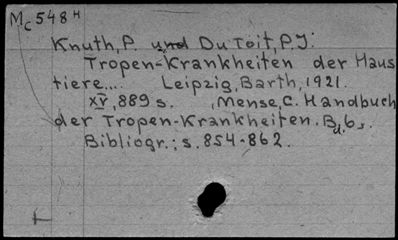 Mc 548 H
Knuth, P. und Du Toit, P.J:
Tropen-Krankheiten der Haus
tiere... Leipzig, Barth, 1921.
XV, 889 s. (Mense, C. Handbuch
der Tropen-Krankheiten. Bd. 6).
Bibliogr.: s. 854-862.